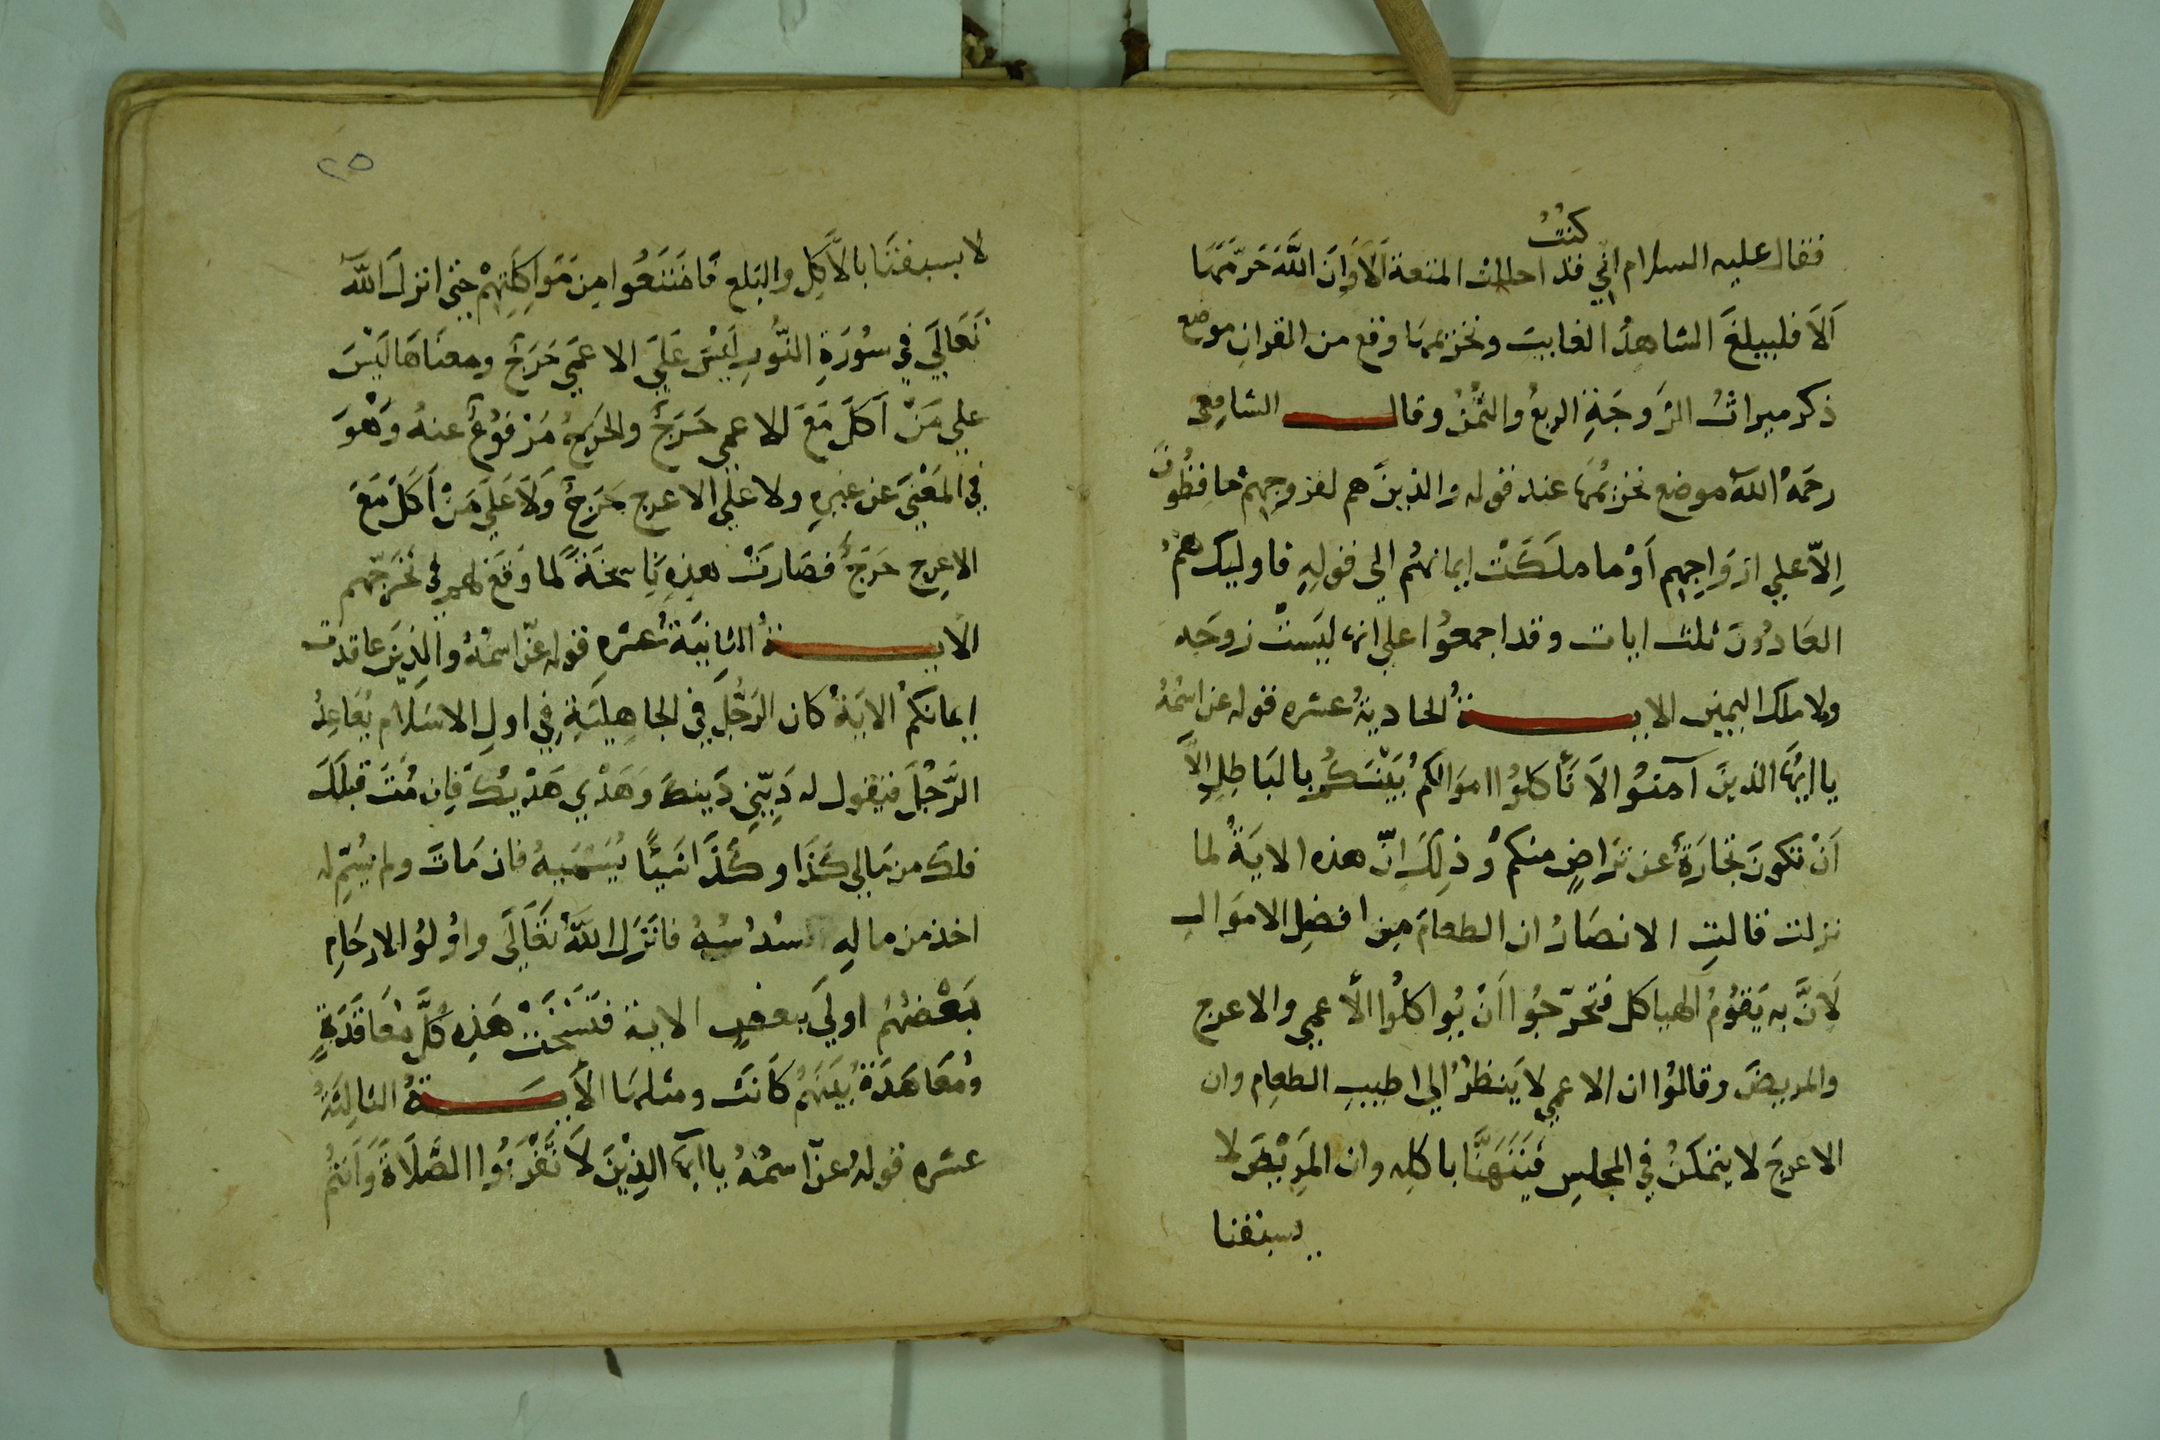 كنت
فقال عليه السلام اني قد احللت المتعة اَلَا وَاِنَ اللَّهَ حَرَّمَهَا
اَلَا فليبلغَ الشاهدُ الغايبَ وتحريمها وقع من القرانِ موضع
ذكر ميراثُ الزَوجَةِ الربعُ والثمُنُ وقال الشافعى
رحمَهُ اللهُ موضع تحريمُها عند قوله والذينَ هم لفروجِهِم حافظُونَ
اِلاّ علي ازوَاجِهِم اَوْ ما ملَكَتْ ايمانهُم الى قولِهِ فاوليك همُ
العَادُونَ ثلث ايات وقد اجمعُوا علي انها ليسَتْ زوجَه
ولا ملك اليمين الايــــةُ الحاديةُ عشره قوله عز اسمُهُ
يا ايهَا الذينَ آمنُوا لاَ تَأكلوُا اموَالكمُ بَيْنَكُم بالبَاطِلِ اِلاَّ
اَنْ تكونَ تجارَةً عن تَراضٍ منكمْ وذلِكَ انّ هذه الايَةُ لما
نزلت قالتِ الانصَارُ ان الطعامَ من افضلِ الاموَالِ
لِاَنَّ به يَقوُمُ الهياكل فتحرّجُوا اَنْ يُواكلُوا الاَعمي والاعرج
والمريضَ وقالوُا ان الاعمي لاَ ينظرُ الي اطيبِ الطعامِ وان
الاعرجَ لا يتمكنُ في المجلسِ فيَتَهَنَّا باكلِه وان المرَيْضَ لا
يسبقنا
٢٥
لا يسبقنَا بالاَكلِ والبَلع فَامْتَنَعُوا مِنَ مَوَاكِلَتِهِمْ حتى انزلَ اللهُ
تَعَالَي في سُورَةِ النُّورِ لَيْسَ عَلَي الاعمَي حَرَجٌ ومعنَاهَا لَيْسَ
علي مَنْ اَكلَ مَعَ الاعمى حَرَجٌ والحرَجُ مَرْفوُعٌ عنهُ وَهْوَ
في المَعْنَي عن غيرِهِ ولا علي الاعرج حَرَجٌ وَلاَ عَلَي مَنْ اَكلَ مَعَ
الاعرِج حَرَجٌ فصَارَتْ هذِهِ نَاسِخَةً لما وَقعَ لهم في تَحَرّجِهِم
الايــــةُ الثانيَةُ عشره قوله عزّ اسمُهُ والذِينَ عاقدت
ايمانكمُ الايَةُ كان الرَجُلُ في الجاهِليَةِ في اولِ الاسَلامِ يُعَاقِدُ
الرَّجُلَ فيَقول له دَيني دَينكَ وَهَدْي هَدْيُكَ فَاِن مُتَ قبلكَ
فلكَ من مَالي كَذَا وكَذَا شَيئًا يُسَمّيهُ فان مَاتَ ولم يُسمّ له
اخذ من مالِهِ سُدْسُهُ فانَزَلَ اللهُ تَعَالَى واوُلوُا الارحَامِ
بَعْضُهُمْ اولَي ببعضٍ الاية فنَسَخَتْ هَذِهِ كُلَّ مُعَاقَدَةٍ
ومُعَاهَدَةٍ بَيْنَهُمْ كانَتْ ومثلهَا الاَيَــــةُ الثالِثَةُ
عشره قوله عزّ اسمُهُ يا ايها الذِيْنَ لاَ تَقْرَبُوا الصَّلَاةَ وَاَنتُم